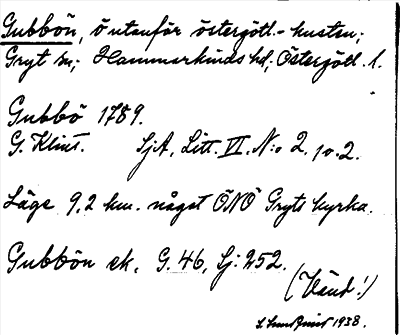 Gubbön, ö utanför östergötl.-kusten;
Gryt sn; Hammarkinds hd; Östergötl. l.
Gubbö 1789.
G. Klint. SjA, Litt. VI. N:o 2. 10.2.
Läge 9,2 km. något ÖNÖ Gryts kyrka.
Gubbön ek. G. 46, Sj: 252.
(Vänd!)
1938.